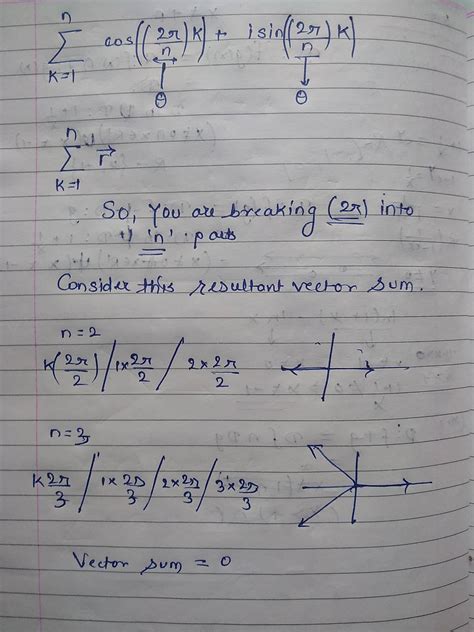 n
∑ cos((2π/n)k) + i sin((2π/n)k)
k=1
θ θ
n
∑ r⃗
k=1
So, You are breaking (2π) into
'n' parts
Consider this resultant vector sum.
n=2
k(2π/2) / 1×2π/2 / 2×2π/2
n=3
k 2π/3 / 1×2π/3 / 2×2π/3 / 3×2π/3
Vector sum = 0